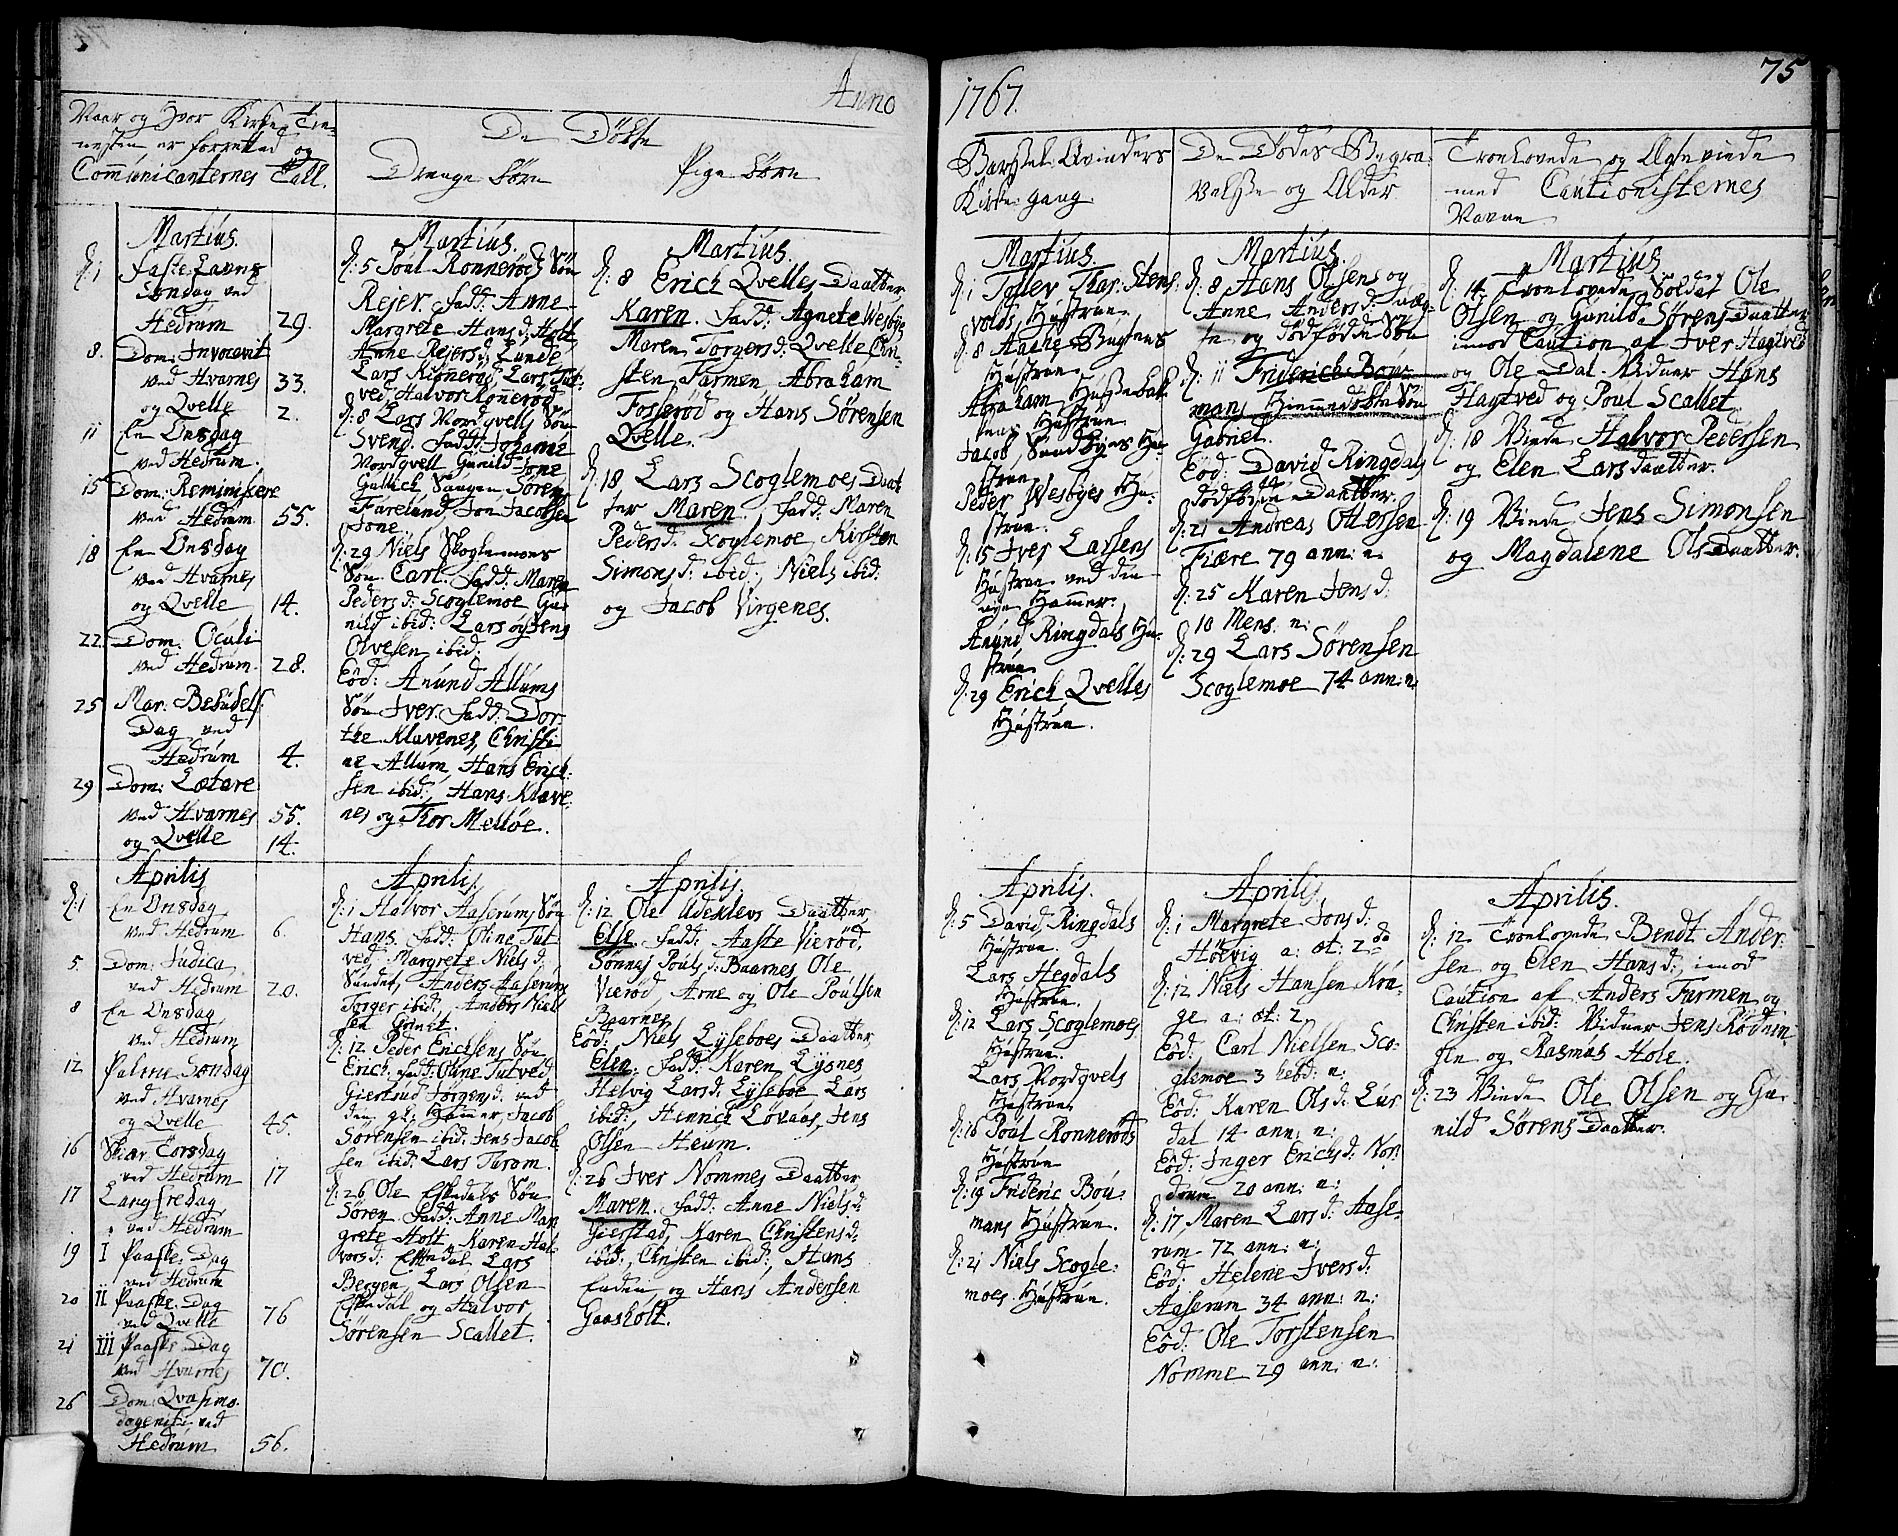 Anno
Naar og Hvor Kirke Tie-
nesten er forrettet og
Communicanternes Tall.
De Døbte
Drenge Børn
Pige Børn
Martius.
d: 1 Faste-Lavns
Søndag ved
Hedrum 29.
8. Dom: Invocavit
ved Hvarnes 33.
og Qvelle 2.
11 En Onsdag
ved Hedrum.
15 Dom: Reminiscere
ved Hedrum 55.
18 En Onsdag
ved Hvarnes
og Qvelle 14.
22. Dom: Oculi
ved Hedrum. 28.
25 Mar: Besüdels:
Dag ved
Hedrum 4.
29 Dom: Lætare
ved Hvarnes 55.
og Qvelle 14.
Aprilis
d: 1 En Onsdag
ved Hedrum 6.
5. Dom: Judica
ved Hedrum 20.
8 En Onsdag
ved Hedrum
12 Palme Søndag
ved Hvarnes
og Qvelle 45.
16 Skiær Torsdag
ved Hedrum 17
17 Langfredag
ved Hedrum
19 I Paaske-Dag
ved Hedrum
20 II Paaske-Dag
ved Qvelle 76
21 III Paaske Dag
ved Hvarnes 70.
26 Dom: Qvasimo-
dogeniti ved
Hedrum 56.
Martius.
d: 5 Poul Ronnerøds Søn
Rejer. Fadd: Anne
Margrete Hans d: Holt
Anne Rejers d: Lunde
Lars Ronnerød, Lars Tut-
ved, Halvor Ronerød
d: 8 Lars Nordqvells Søn
Svend. Fadd: Johanne
Nordqvell Gunild Tone
Gullich Saugen, Søren
Farelund, Jon Jacobsen
Tone.
d: 29 Niels Skoglemoes
Søn Carl. Fadd: Maren
Peders d: Scoglemoe Gu-
nild ibid: Lars og Jens
Olvesen ibid:
Eod: Anund Allums
Søn Iver. Fadd: Dor-
the Klavenes, Christi-
ne Allum, Hans Erich-
sen ibid:, Hans Klave-
nes og Thor Melløe.
Aprilis.
d: 1 Halvor Aaserums Søn
Hans. Fadd: Oline Tut-
ved, Margrete Niels d:
Sundet, Anders Aaserum
Torger ibid:, Anders Niel-
sen Grinet.
d: 12 Peder Erichsens Søn
Erich. Fadd: Oline Tutved
Giertrud Jørgens d: ved
den gl: Hammer, Jacob
Sørensen ibid: Jens Jacob-
sen ibid: Lars Throm.
d: 26 Ole Eskedals Søn
Søren. Fadd: Anne Mar-
grete Holt, Karen Hal-
vors d: Eskedal, Lars
Bergen, Lars Olsen
Eskedal og Halvor
Sørensen Scallet.
Martius.
d: 8 Erich Qvelles Daatter
Karen. Fadd: Agnete Wesbye
Maren Torgers d: Qvelle Chri-
sten Farmen Abraham
Fosserød og Hans Sørensen
Qvelle.
d: 18 Lars Scoglemoes Daat-
ter Maren. Fadd: Maren
Peders d: Scoglemoe, Kirsten
Simons d: ibid:, Niels ibid:
og Jacob Virgenes.
Aprilis.
d: 12 Ole Udeklevs Daatter
Else. Fadd: Aaste Vierød,
Sønnej Pouls d: Baarnes Ole
Vierød, Arne og Ole Poulsen
Baarnes
Eod: Niels Lyseboes Daatter
Elen. Fadd: Karen Lysnes
Helvig Lars d: Lyseboe Lars
ibid:, Henrich Løvaas, Jens
Olsen Heum.
d: 26 Iver Nommes Daatter
Maren. Fadd: Anne Niels d:
Gierstad, Karen Christens d:
ibid:, Christen ibid:, Hans
Enden, og Hans Andersen
Gaasholt.
1767.
75
Barsel-Qvinders
Kirke-gang.
De Dødes Begra-
velse og Alder
Troelovede og Ægteviede
med Cautionisternes
Navne
Martius.
d: 1 Tollev Thor-Stens-
volds Hustrue.
d: 8 Aashe Bugtens
Hustrue.
Abraham Husebak-
kens Hustrue
Jacob Sundbyes Hu-
strue
Peder Wesbyes Hu-
strue.
d: 15 Iver Larsens
Hustrue ved den
nye Hammer:
Anund Ringdals Hu-
strue
d: 29 Erich Qvelles
Hustrue.
Aprilis.
d: 5 David Ringdals
Hustrue.
Lars Hegdals
Hustrue.
d: 12 Lars Scoglemoes
Hustrue.
Lars Nordqvels
Hustrue
d: 16 Poul Ronnerøds
Hustrue
d: 19 Frideric Bou-
mans Hustrue.
d: 21 Niels Scogle-
moes Hustrue.
Martius.
d: 8 Hans Olsens og
Anne Anders d: uæg-
te og dødfødde Søn
d: 11 Friderich Bou-
mans Hiemmedøbte Søn
Gabriel.
Eod: David Ringdals
dødfødde Daatter.
d: 21 Andreas Ottersen
Fiære 79 ann: n:
d: 25 Karen Jens d:
10 Mens: n:
d: 29 Lars Sørensen
Scoglemoe 74 ann: n:
Aprilis.
d: 1 Margrete Jons d:
Høevig a: æt: 2do
d: 12 Niels Hansen Kra-
ge a: æt: 2.
Eod: Carl Nielsen Sco-
glemoe 3 hebd: n:
Eod: Karen Ols d: Lur-
dal 14 ann: n:
Eod: Inger Erichs d: Nor-
drum 20 ann: n:
d: 17, Maren Lars d: Aase-
rum 72 ann: n:
Eod: Helene Ivers d:
Aaserum 34 ann: n:
Eod: Ole Torstensen
Nomme 29 ann: n:
Martius.
d: 14 Troelovede Soldat Ole
Olsen og Gunild Sørens Daatter
imod Caution af Iver Hagtved
og Ole Dal. Vidner Hans
Hagtved og Poul Scallet
d: 18 Viede Halvor Pedersen
og Elen Lars daatter.
d: 19 Viede Jens Simonsen
og Magdalene Ols Daatter.
Aprilis.
d: 12 Troelovede Bendt Ander-
sen og Elen Hans d:, imod
Caution af Anders Farmen og
Christen ibid: Vidner Jens Rødning-
en og Rasmus Hole.
d: 23 Viede Ole Olsen og Gu-
nild Sørens Daatter.